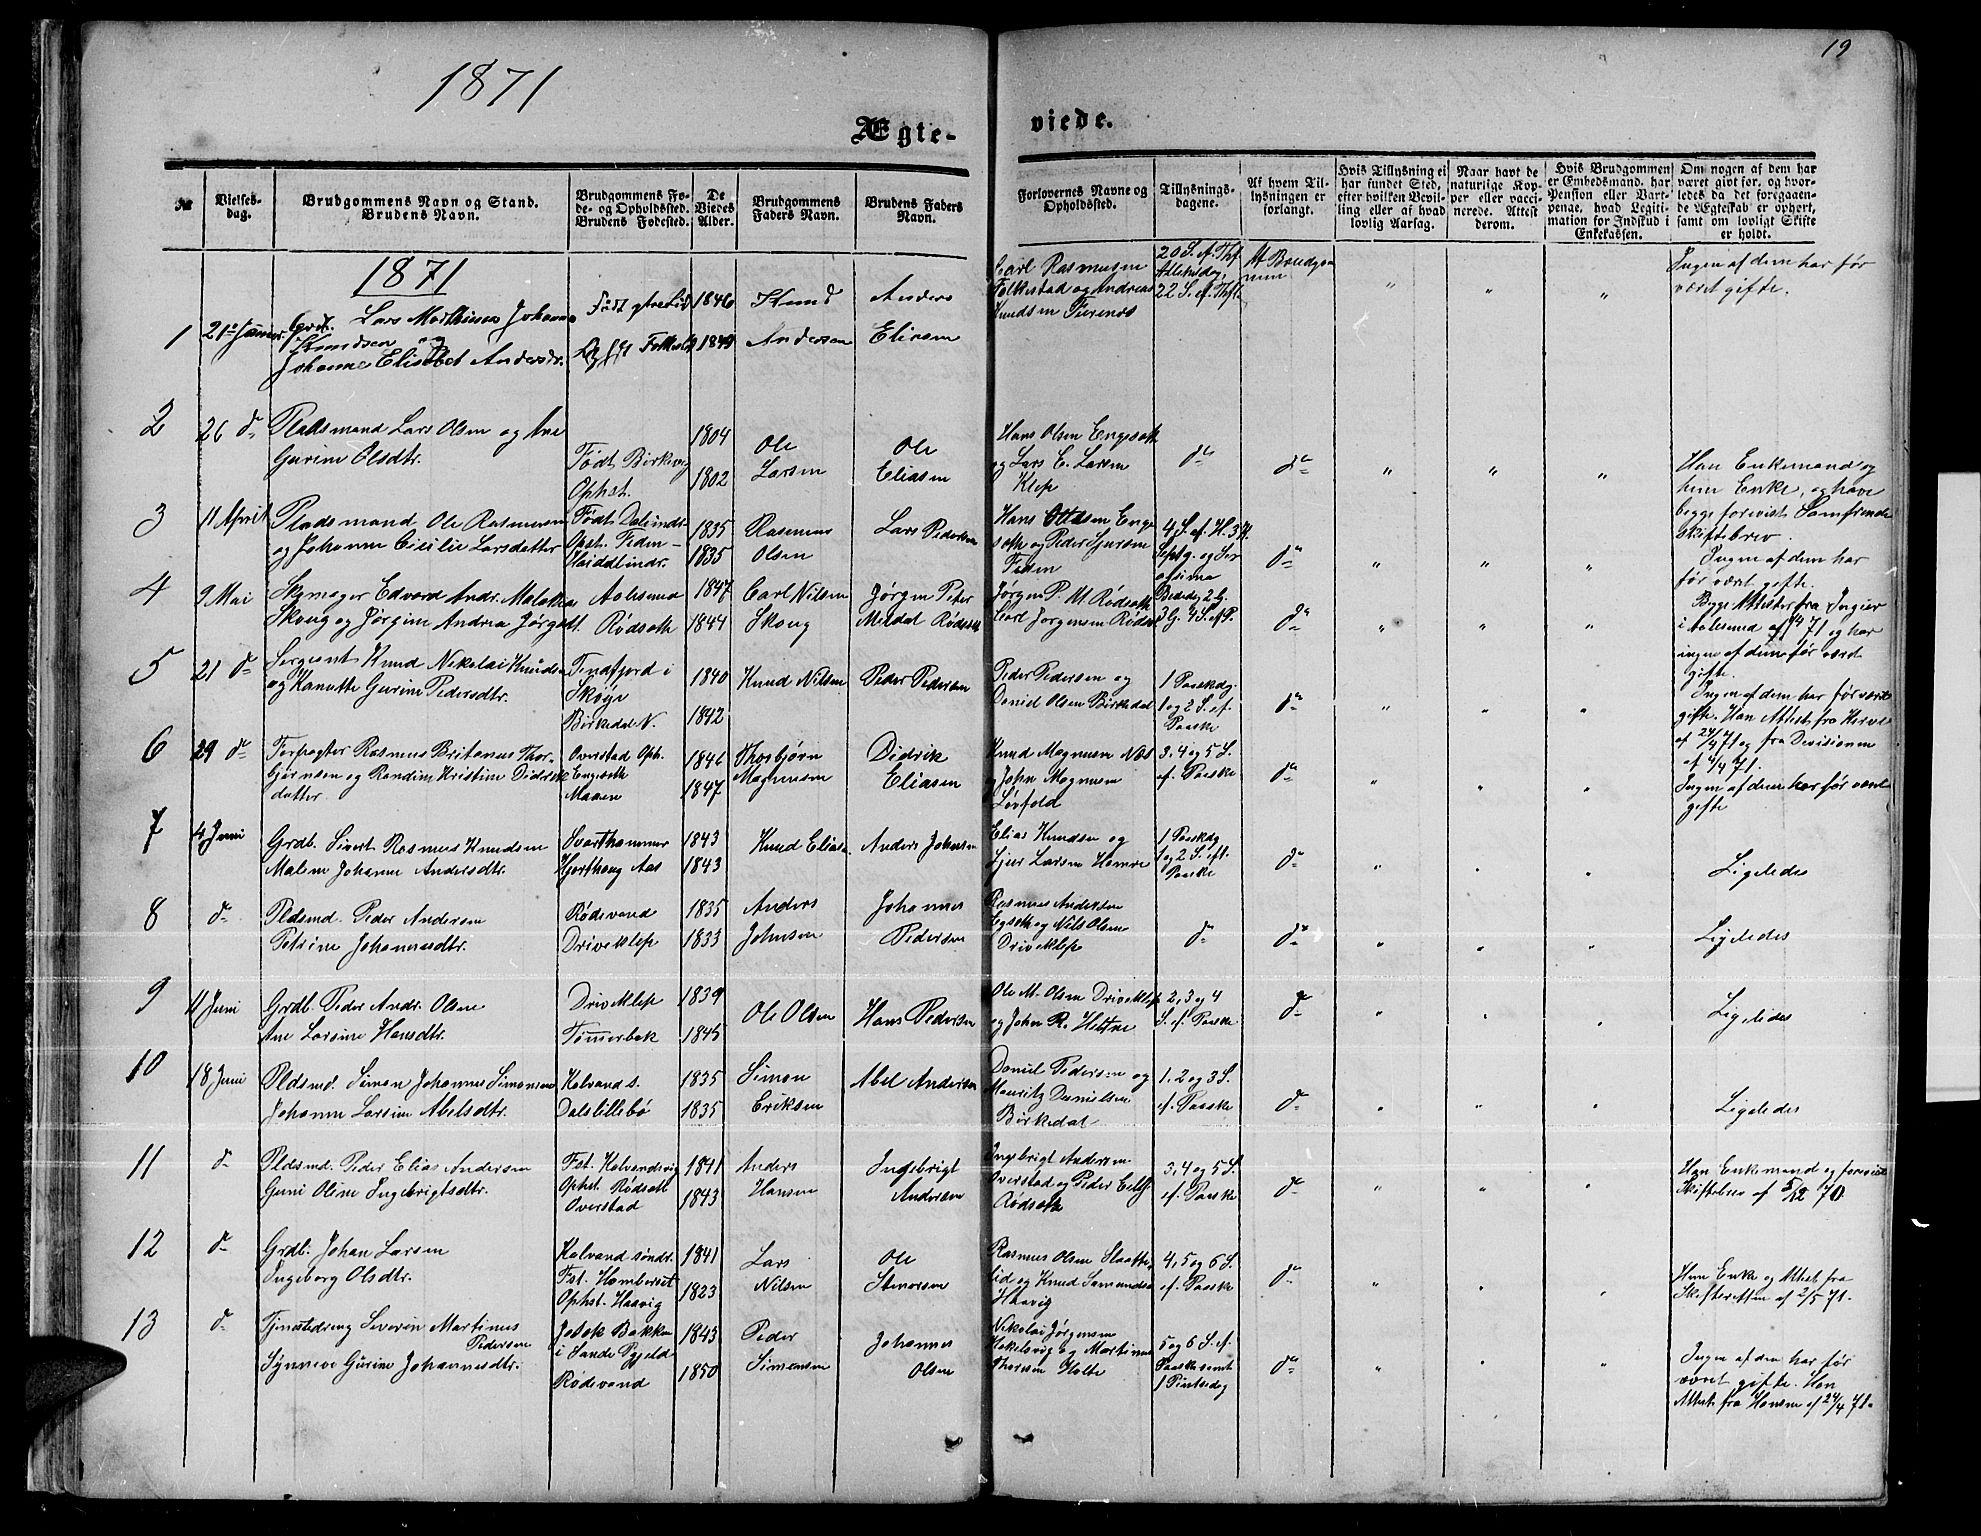 19
1871
Ægte-
viede.
№
Vielses-
dag.
Brudgommens Navn og Stand.
Brudens Navn.
Brudgommens Fø-
de- og Opholdssted.
Brudens Fødested.
De
Viedes
Alder.
Brudgommens
Faders Navn.
Brudens Faders
Navn.
Forlovernes Navne og
Opholdssted.
Tillysnings-
dagene.
Af hvem Til-
lysningen er
forlangt.
Hvis Tillysning ei
har fundet Sted,
efter hvilken Bevil-
ling eller af hvad
lovlig Aarsag.
Naar havt de
naturlige Kop-
per eller vacci-
nerede. Attest
derom.
Hvis Brudgommen
er Embedsmand, har
Pension eller Vart-
penge, hvad Legiti-
mation for Indskud i
Enkekassen.
Om nogen af dem har
været gift før, og hvor-
ledes da det foregaaen-
de Ægteskab er ophørt,
samt om lovligt Skifte
er holdt.
1871
1
21 Januar
Lars Mathias Johan
Knudsen og
Johanne Elisabet Andersdtr.
Født
1846
1849
Knud
Andersen
Anders
Eliasen
Carl Rasmusen
Folkestad og Andreas
Knudsen
20 S. ef. Thf.
22 S. ef. Thf.
Af Brudgom
men
Ingen af dem har før
været gifte.
2
26 d
Pladsmand Lars Olsen og
Gurine Olsdtr.
Født Birkevig
Ophst.
1804
1802
Ole
Larsen
Ole
Eliasen
Hans Olsen Engeseth
og Lars E. Larsen
Klep
d
d
Han Enkemand og
hun Enke, og have
begge forevist Samfrænde
skiftebrev.
3
11 April
Pladsmand Ole Rasmusen
og Johanne Cecilie Larsdatter
1835
1835
Rasmus
Olsen
Lars Pedersen
Hans Ottesen Enge
seth og Peder Sjursen
d
Ingen af dem har
før været gifte.
4
9 Mai
Skomager Edvard Andr.
Skoug og Jørgine Andrea Jørgsdt.
Aalesund
Rødseth
1847
1844
Carl Nilsen
Skoug
Jørgen Peter
Rødseth
Jørgen P. M Rødseth
Carl Jørgensen Rødset
d
Begge Attester fra Ingier
i Aalesund af 71 og har
ingen af dem før været
gifte.
5
21 d
Sergeant Knud Nikolai Knudsen
og Hanutte Gurine Pedersdtr.
Tennfjord i
Skoge
Birkedal N.
1840
1842
Knud Nilsen
Peder Pedersen
Peder Pedersen og
Daniel Olsen Birkedal
1 Paaskdg.
1 og 2 S. ef.
Paaske
d
Ingen af dem har før været
gifte. Han Attest fra
af 24/4 71 og fra Divisionen
af 4/4 71.
6
29 d
Forpagter Rasmus Britanus Thor-
bjørnsen og Randine Kristine Didriks
datter
Overstad Oph.
Engeseth
Maaen
1846
1847
Thorbjørn
Magnusen
Didrik
Eliasen
Knud Magnusen Næs
og John Magnusen
Løvfold
3, 4 og 5 S.
ef. Paaske
d
Ingen af dem har før været
gifte
7
4 Juni
Grdb. Sivert Rasmus Knudsen
Malene Johanne Andersdtr.
Svarthammer
Hjorthaug Aas
1843
1843
Knud Eliasen
Anders Johnsen
Elias Knudsen og
Sjur Larsen Hamre
1 Paaskdg
1 og 2 S. eft.
Paaske
d
Ligeledes
8
d
Pldsmd. Peder Andersen
Petrine Johannesdtr.
Rødevand
Driveklep
1835
1833
Anders
Johnsen
Johannes
Pedersen
Rasmus Andersen
Egseth og Nils Olsen
Driveklep
d
d
Ligeledes
9
11 Juni
Grdb. Peder Andr. Olsen
Ane Larsine Hansdtr.
Driveklep
Tømmerbak
1839
1845
Ole Olsen
Hans Pedersen
Ole M. Olsen Driveklep
og John R. Heltne
2, 3 og 4
S. ef. Paaske
d
Ligeledes
10
18 Juni
Pldsmd. Simon Johannes Simonsen
Johanne Larsine Abelsdtr.
Kalvand s.
Dalelillebø
1835
1835
Simon
Eriksen
Abel Andersen
Daniel Pedersen og
Mauritz Danielsen
Birkedal
1, 2 og 3 S.
ef. Paaske
d
Ligeledes
11
d
Pldsmd. Peder Elias Andersen
Guni Oline Ingebrigtsdtr.
Fst. Kalvandsvig
Ophst. Rødseth
Overstad
1841
1843
Anders
Hansen
Ingebrigt
Andersen
Ingebrigt Andersen
Overstad og Peder
Rødseth
3, 4 og 5 S.
ef. Paaske
d
Han Enkemand og foreviist
Skiftebrev af 5/12 70.
12
d
Grdb. Johan Larsen
Ingeborg Olsdtr.
Kalvand søndr.
Fst. Hamberset
Ophst. Haavig
1841
1823
Lars
Nilsen
Ole
Stenersen
Rasmus Olsen Slaatte-
lid og Knud Samundsen
Haavig
4, 5 og 6 S.
ef. Paaske
d
Hun Enke og Attest fra
Skifteretten af 2/5 71.
13
d
Tjenestedreng Severin Martinus
Pedersen
Synneve Gurine Johannesdtr.
Jøsok Bakken
i Sande Pgjeld
Rødevand
1843
1850
Peder
Simonsen
Johannes
Olsen
Nikolai Jørgensen
Hakelsvig og Martinus
Thoresen Holte
5 og 6 S. ef.
Paaske samt
1 Pintsedag
d
Ingen af dem har før
været gifte. Han
Attest fra Hansen af 24/4 71.